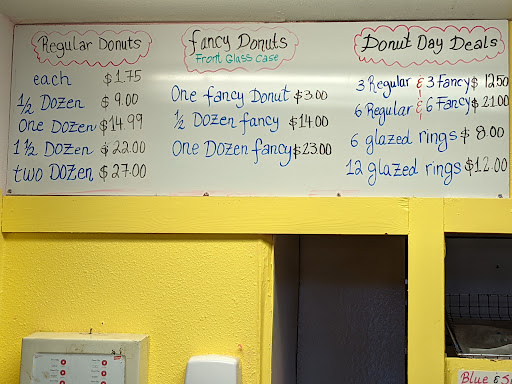 Regular Donuts
each $1.75
1/2 Dozen $9.00
One Dozen $14.99
1 1/2 Dozen $22.00
two Dozen $27.00
fancy Donuts
Front Glass Case
One fancy Donut $3.00
1/2 Dozen fancy $14.00
One Dozen fancy $23.00
Donut Day Deals
3 Regular & 3 Fancy $12.50
6 Regular & 6 Fancy $21.00
6 glazed rings $8.00
12 glazed rings $12.00
Blue &